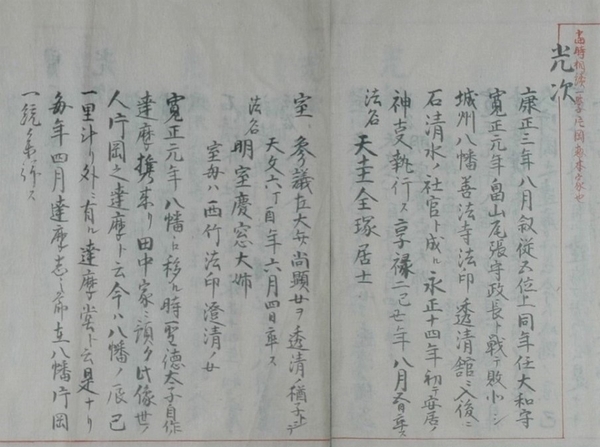 光次
康正三年八月叙従五位上同年任大和守
寛正元年畠山尾張守政長ト戦テ敗北シ
城州八幡善法寺法印透清館ニ入後ニ
石清水ノ社官ト成ル永正十四年初テ安居ノ
神支執行ス享禄二己丑年八月五日卒ス
法名 天圭全琢居士
室 参議左大弁尚顕女ヲ透清ノ猶子トシテ
天文六丁酉年六月四日卒ス
法名 明室慶窓大姉
室母ハ西竹法印澄清ノ女
寛正元年八幡ニ移ル時聖徳太子自作
達摩携来リ田中家ニ預ク此像世ノ
人片岡之達摩ト云今ハ八幡ノ辰巳
一里斗リ外ニ有ル達摩堂ト云是ナリ
毎年四月達摩忌之節在八幡片岡
一統